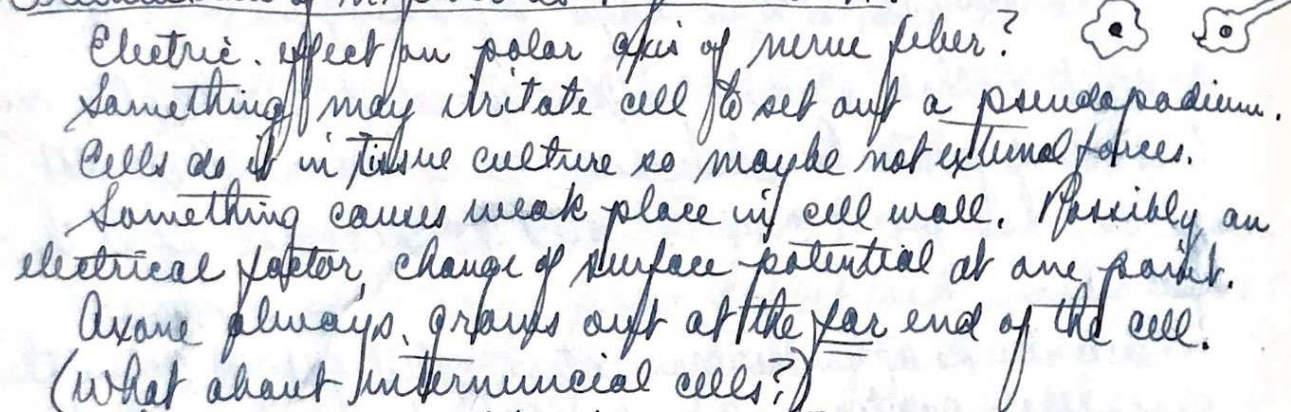 Electric effect on polar axis of nerve fiber?
Something may irritate cell to set out a pseudopodium.
Cells do it in tissue culture so maybe not external forces.
Something causes weak place in cell wall. Possibly an
electrical factor, change of surface potential at one point.
Axone always grows out at the far end of the cell.
(What about internuncial cells?)